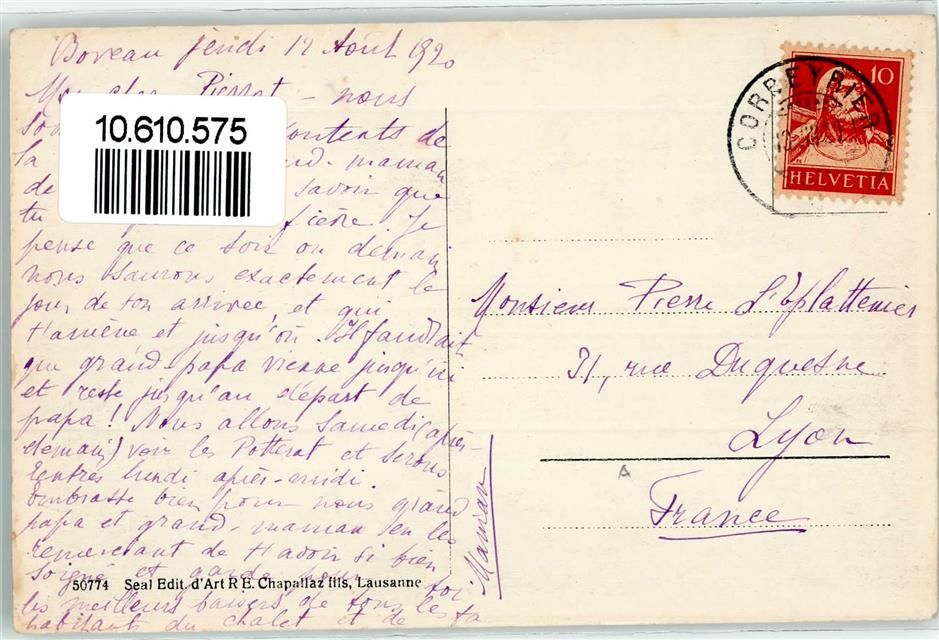 Boveau jeudi 12 Août 1920
Mon cher Pierrot – nous
contents de
la grand-maman
de savoir que
tu fièvre. Je
pense que ce soir ou demain
nous saurons exactement le
jour de ton arrivée, et qui
t'amène et jusqu'où. Il faudrait
que grand-papa vienne jusqu'ici
et reste jusqu'au départ de
papa! Nous allons Samedi (après-
demain) voir les Potterat et serons
rentrés lundi après-midi.
Embrasse bien pour nous grand
papa et grand-maman en les
remerciant de t'avoir si bien
soigné et garde pour toi
les meilleurs baisers de tous les
habitants du chalet et de ta
Maman
10.610.575
50774 Seal Edit. d'Art R E. Chapallaz fils, Lausanne
CORREVRIER
10
HELVETIA
Monsieur Pierre L'Eplattenier
31, rue Duquesne
Lyon
France
A